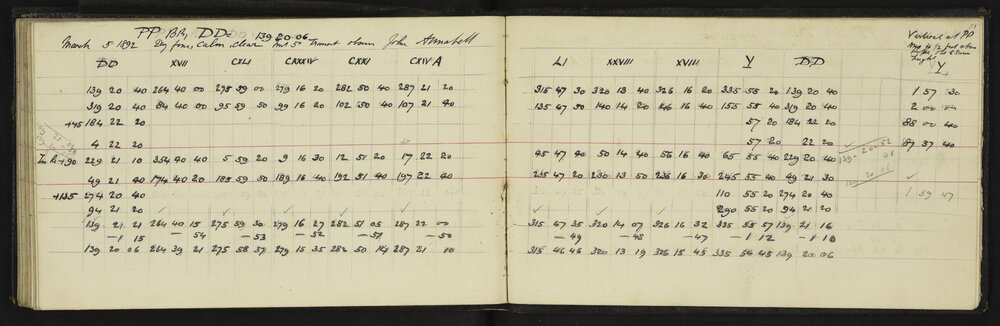 PP BR, DD 139 20 06
March 5 1892 Day fine, Calm, clear Int 5" Transit observ John Annabell
DD XVII CXLI CXXXIV CXXI CXIV A
139 20 40 264 40 00 275 59 00 279 16 20 282 50 40 287 21 20
319 20 40 84 40 00 95 59 50 99 16 20 102 50 40 107 21 40
+45 184 22 20
4 22 20
229 21 10 354 40 40 5 59 20 9 16 30 12 51 20 17 22 20
49 21 40 174 40 20 185 59 50 189 16 40 192 51 40 197 22 40
+135 274 20 40
94 21 20
139 21 21 264 40 15 275 59 30 279 16 27 282 51 05 287 22 00
—1 15 — 54 —53 — 52 —51 —50
139 20 06 264 39 21 275 58 37 279 15 35 282 50 14 287 21 10
51
Vertical at PP
height
LI XXVIII XXVIII Y DD Y
315 47 30 320 13 40 326 16 20 335 55 20 139 20 40 1 57 30
135 47 50 140 14 20 146 16 40 155 55 40 319 20 40 2 00 00
57 20 184 22 20 88 00 40
57 20 22 20 87 37 40
139-20-52
45 47 40 50 14 40 56 16 40 65 55 40 229 20 40
235 47 20 230 13 50 236 16 30 245 55 40 49 21 30
110 55 20 274 20 40 1 59 47
290 55 20 94 21 20
315 47 35 320 14 07 326 16 32 335 55 57 139 21 16
—49 —48 —47 —1 12 —1 10
315 46 46 320 13 19 326 15 45 335 54 45 139 20 06